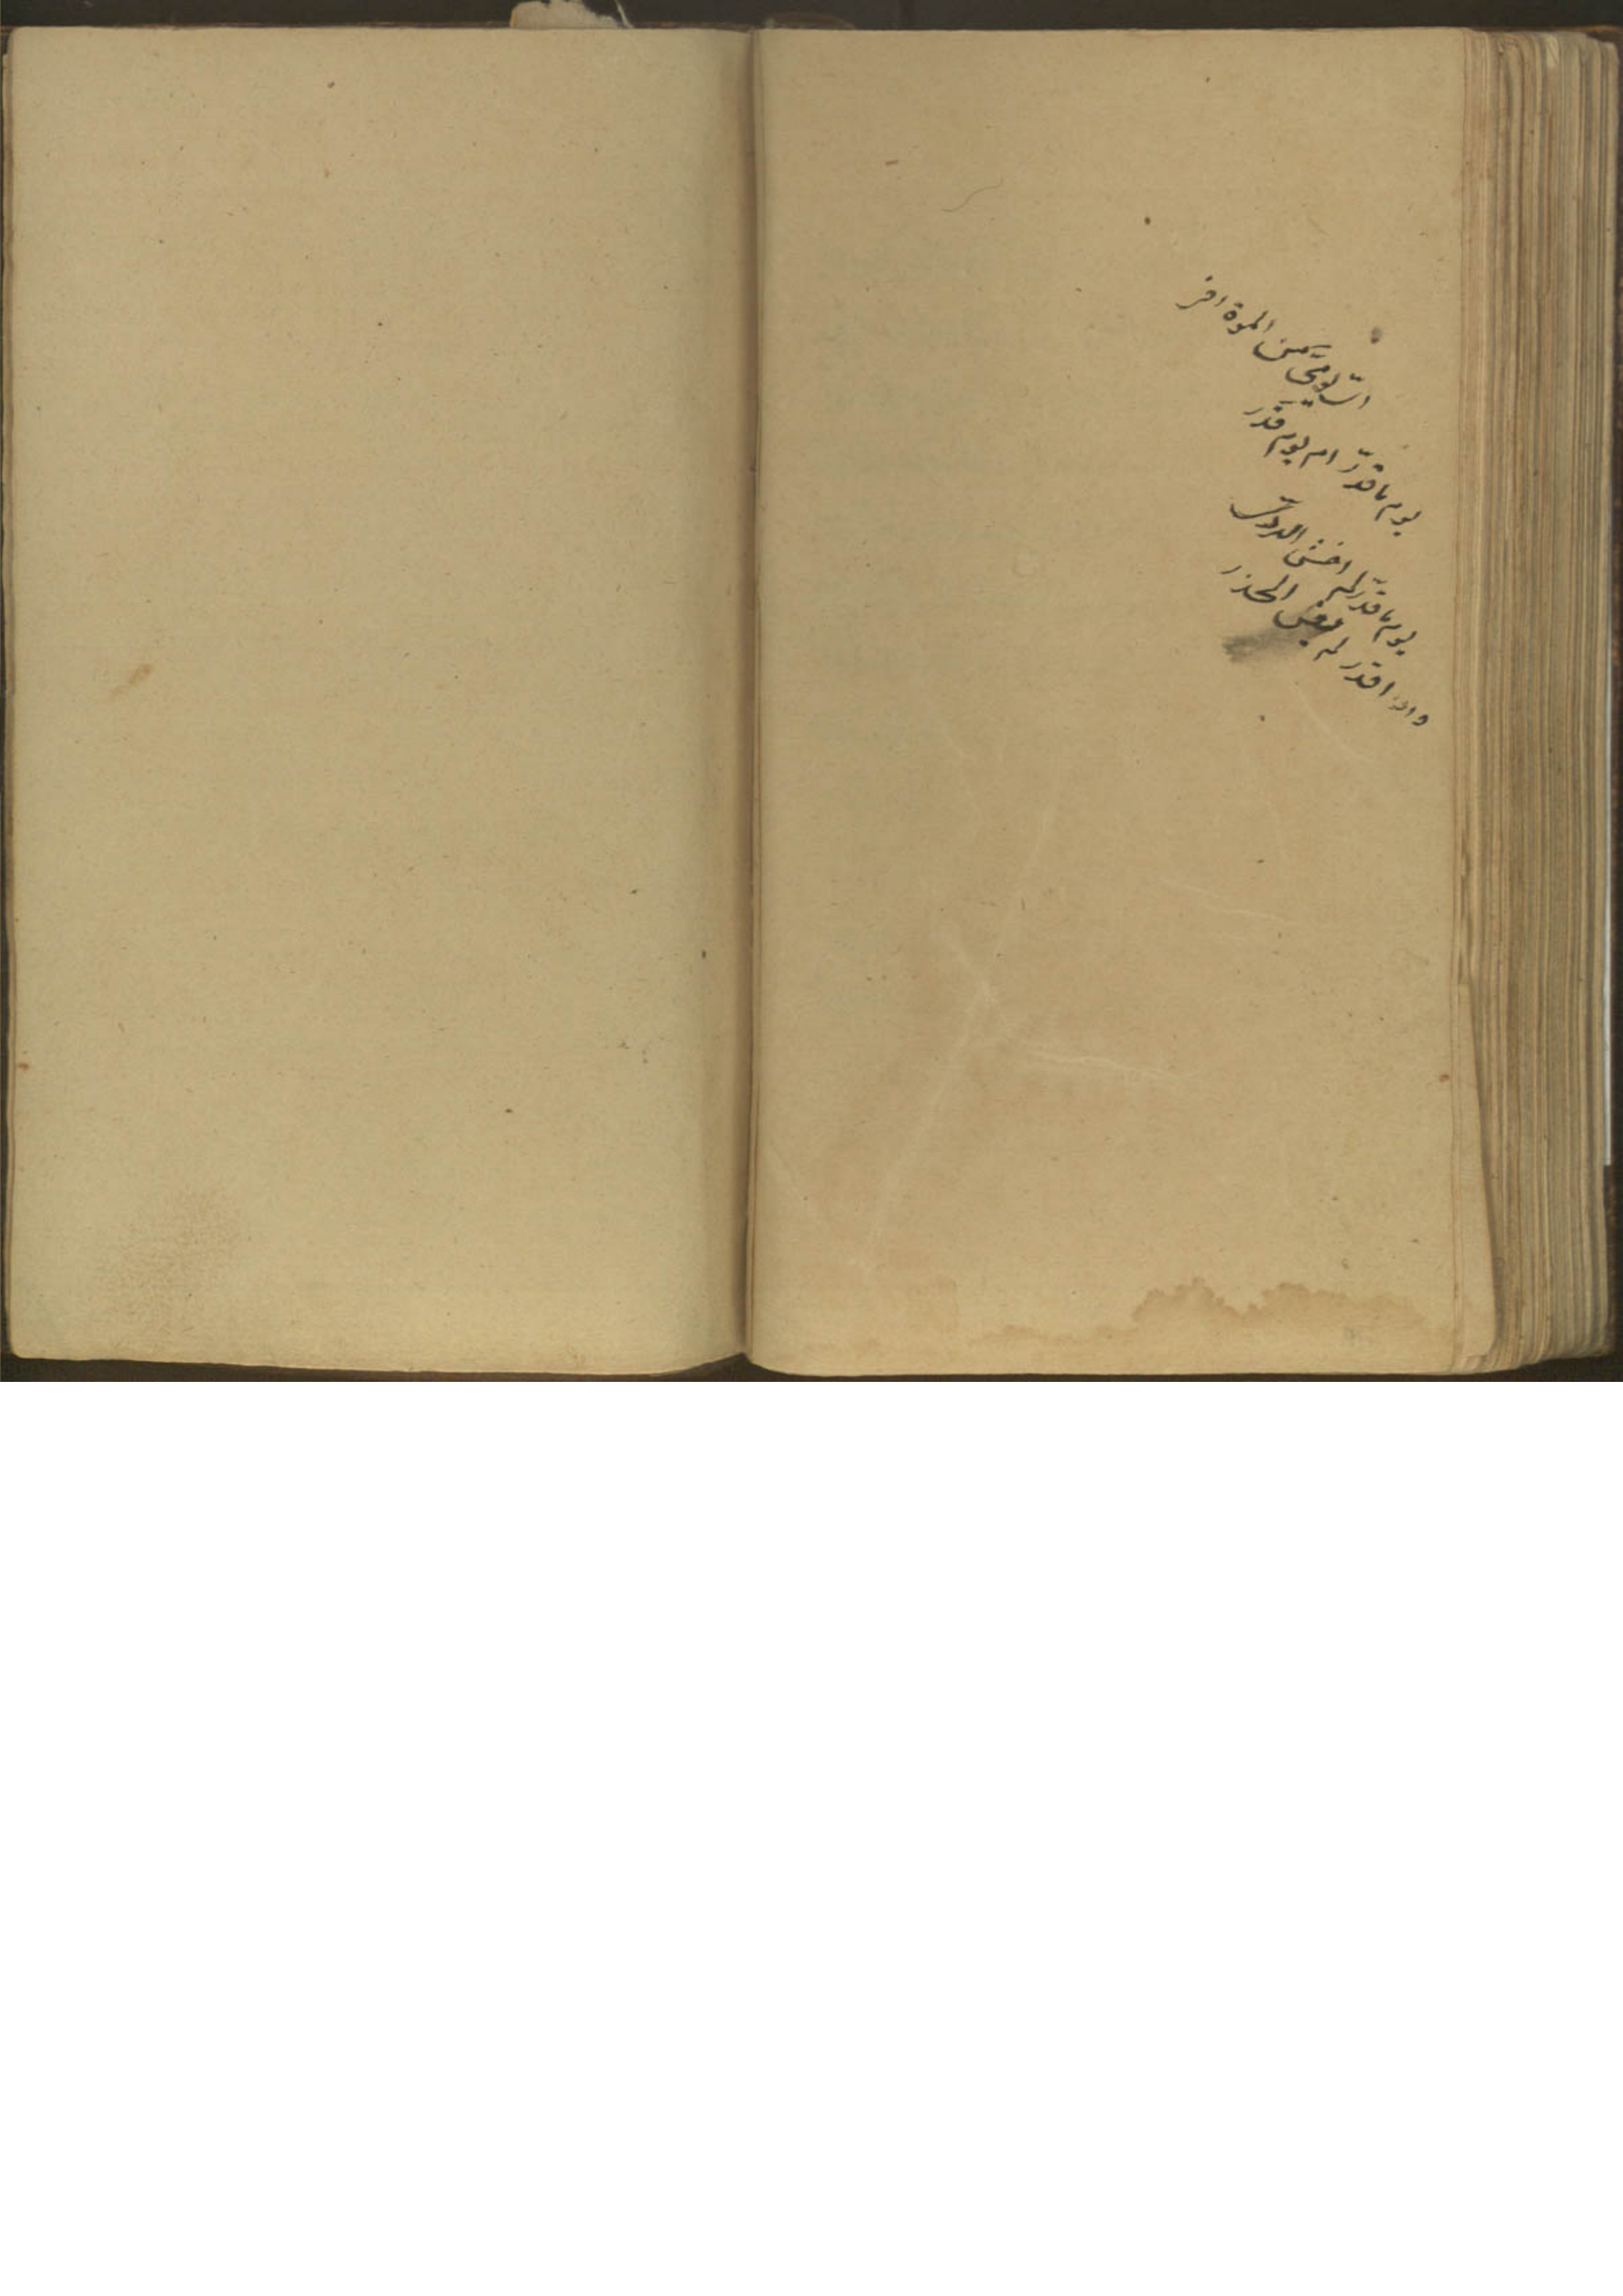 اىّ يومىّ من الموة افر
يوم ما قدّر ام يوم قدر
يوم ما قدّر لم اخش الردى
واذا قدر لم يغن الحذر